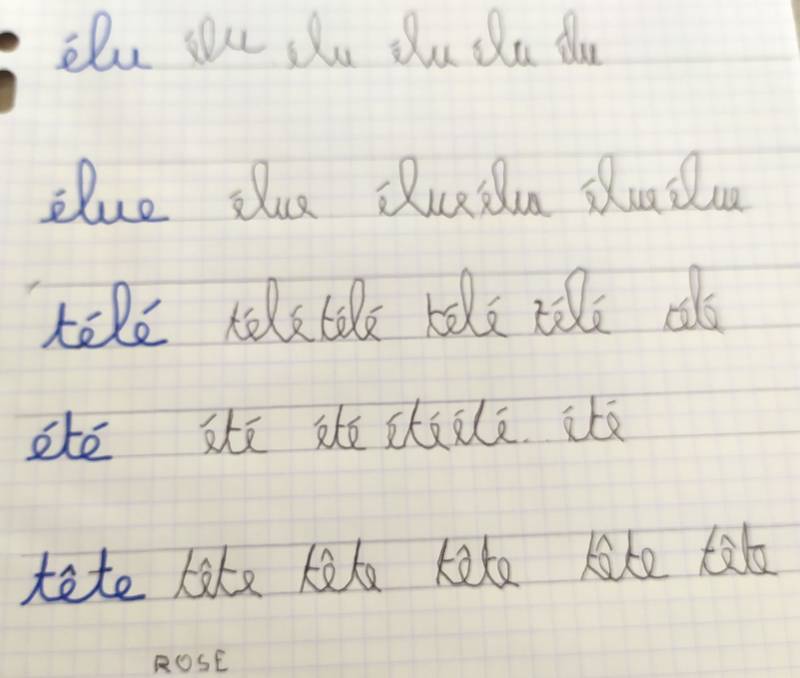 élu élu élu élu élu élu
élue élue élue élue élue élue
télé télé télé télé télé télé
été été été été été été
tête tête tête tête tête tête
ROSE